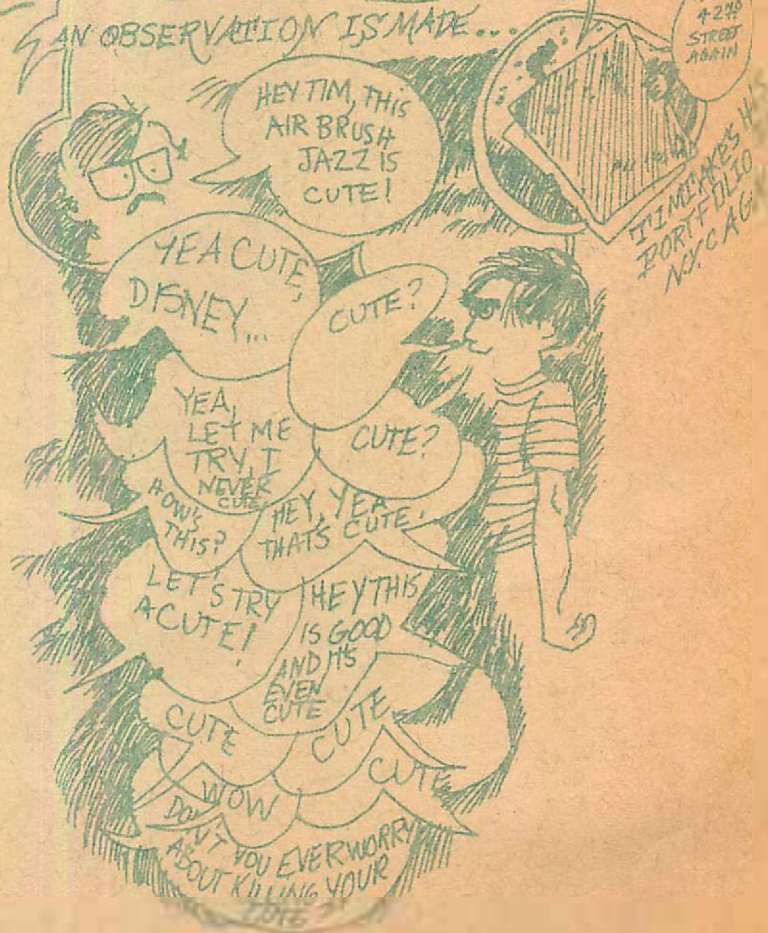 AN OBSERVATION IS MADE...
42ND
STREET
AGAIN
HEY TIM, THIS
AIR BRUSH
JAZZ IS
CUTE!
TIM TAKES HIS
PORTFOLIO
N.Y.C AG
YEA CUTE,
DISNEY...
CUTE?
YEA,
LET ME
TRY, I
NEVER
CUTE
CUTE?
HOW'S
THIS?
HEY, YEA
THAT'S CUTE.
LET'S TRY
A CUTE!
HEY THIS
IS GOOD
AND IT'S
EVEN
CUTE
CUTE
CUTE
CUTE
WOW
DON'T YOU EVER WORRY
ABOUT KILLING YOUR